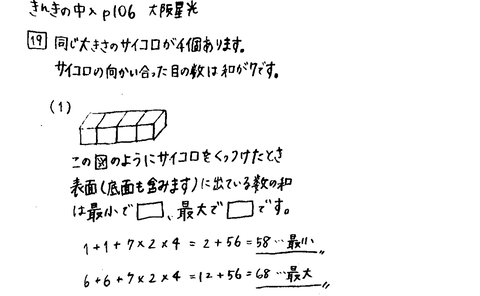 きんきの中入 p106 大阪星光
19 同じ大きさのサイコロが4個あります。
サイコロの向かい合った目の数は和が7です。
(1)
この図のようにサイコロをくっつけたとき
表面(底面も含みます)に出ている数の和
は最小で□、最大で□です。
1+1+7×2×4 = 2+56 = 58…最小
6+6+7×2×4 = 12+56 = 68…最大